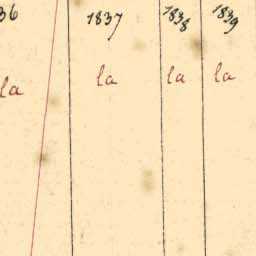 36 1837 1838 1839
la la la la